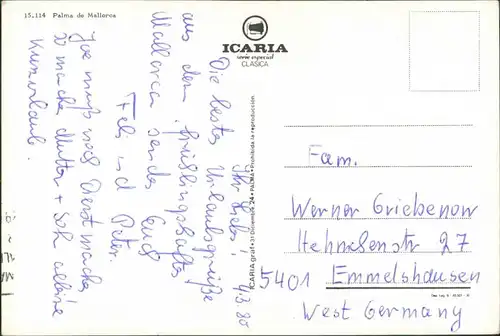 15.114 Palma de Mallorca
ICARIA
serie especial
CLASICA
Ihr Lieben! 4.3.80
Die besten Urlaubsgrüße
aus dem frühlingshaften
Mallorca sendet Euch
Feli und Peter.
Yve muß noch Dienst machen,
so machen Mutter + Sohn alleine
Kurzurlaub.
ICARIA graf • 31 Diciembre, 24 • PALMA • Prohibida la reproducción
Fam.
Werner Griebenow
str 27
5401 Emmelshausen
West Germany